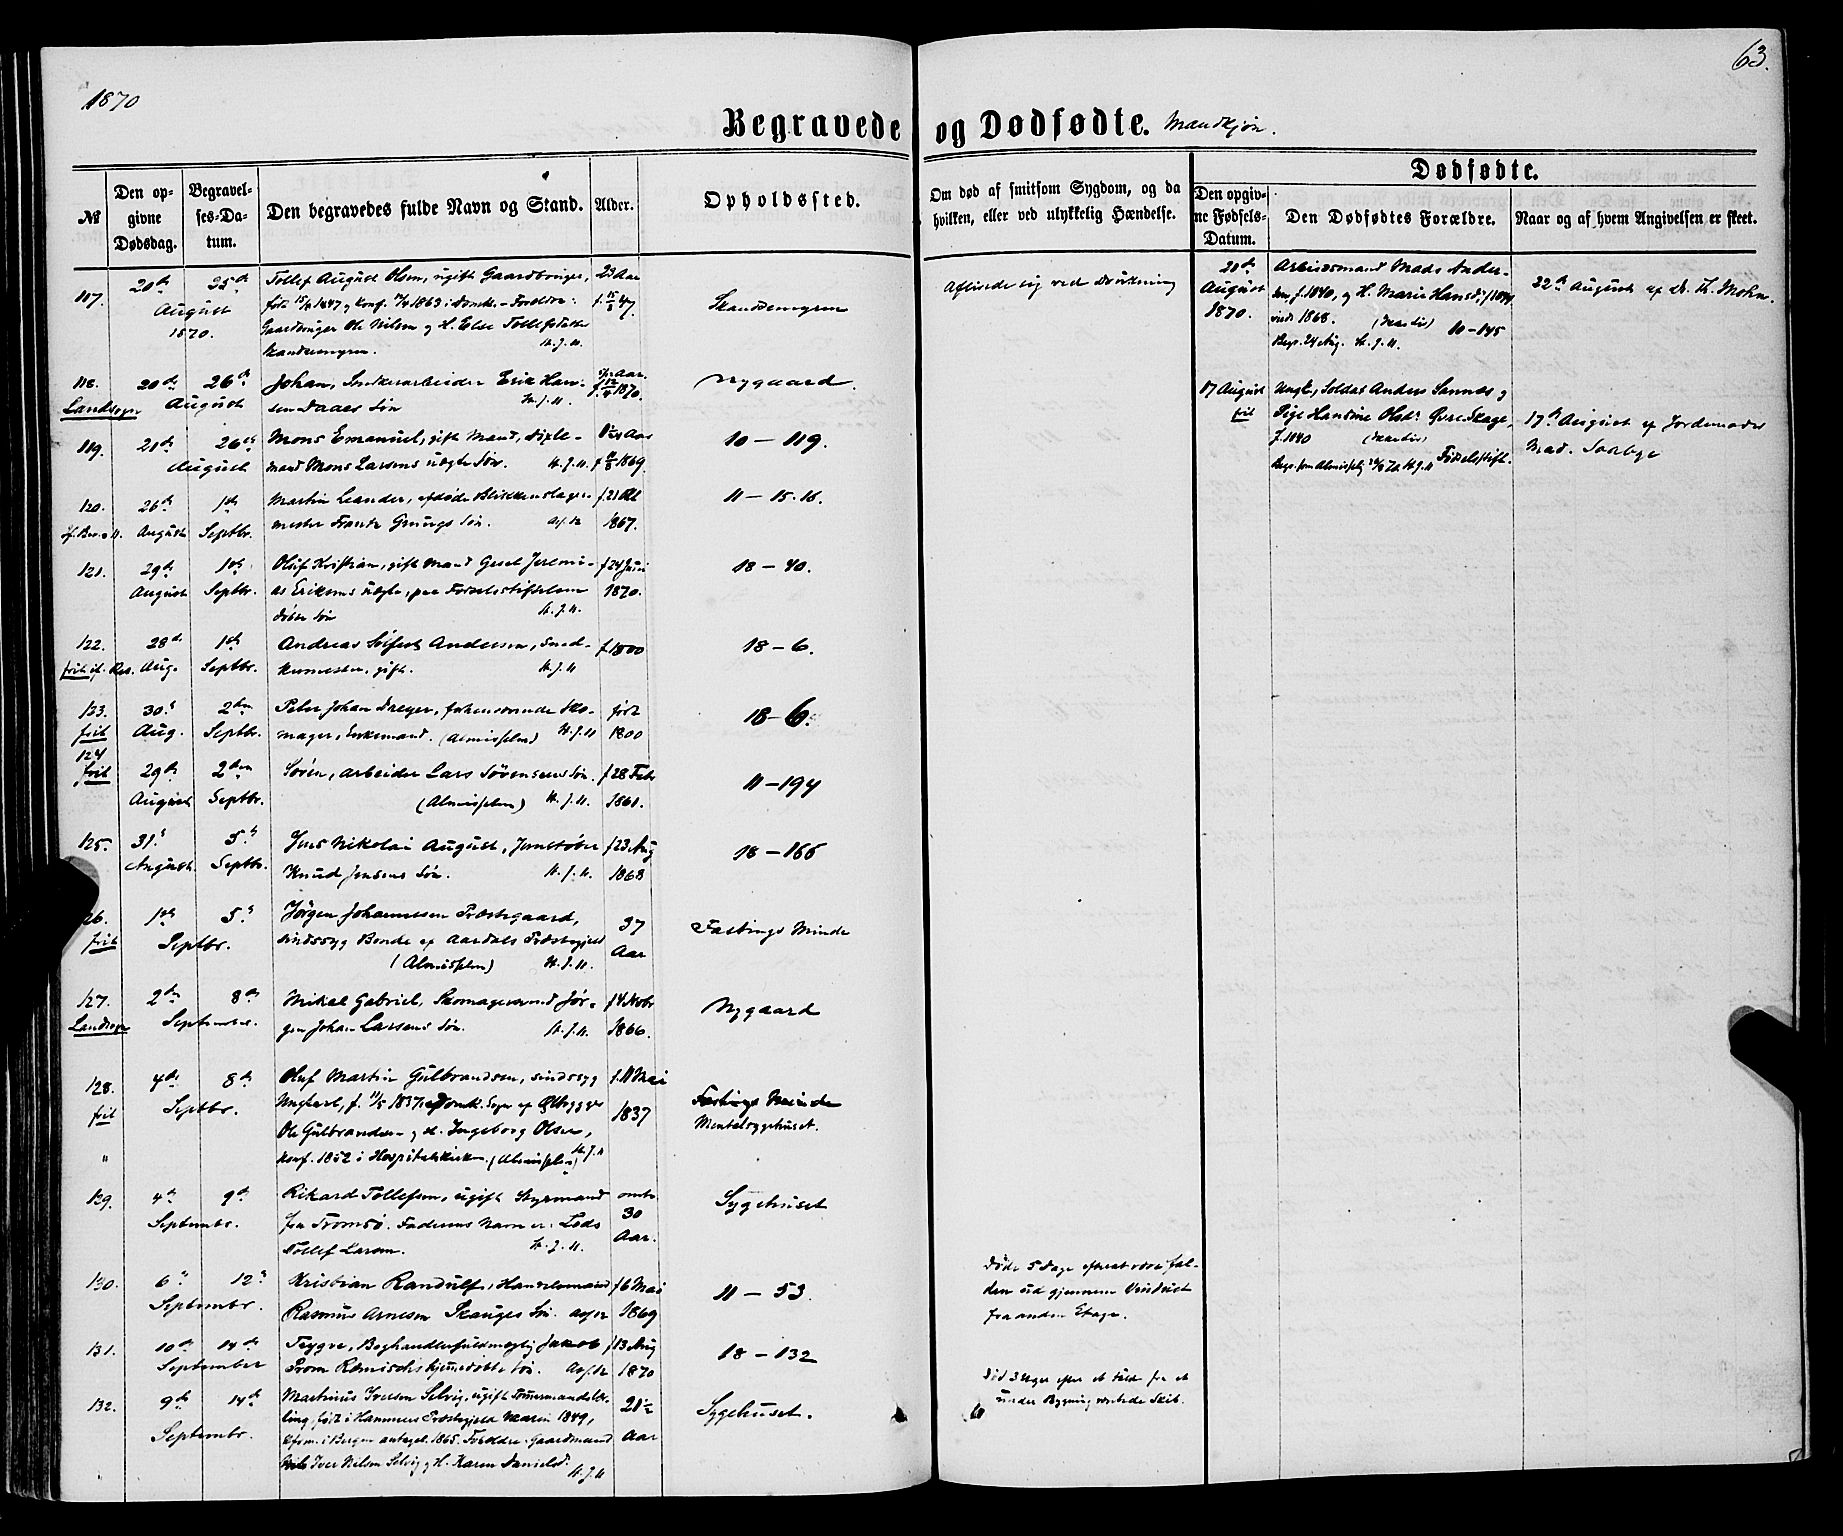 1870
63.
Begravede og Dødfødte. Mandkjøn.
№
Den opgivne Dødsdag.
Begravelses-Datum.
Den begravedes fulde Navn og Stand.
Alder.
Opholdssted.
Om død af smitsom Sygdom, og da hvilken, eller ved ulykkelig Hændelse.
Dødfødte.
Den opgivne Fødsels-Datum.
Den Dødfødtes Forældre.
Naar og af hvem Angivelsen er skeet.
117. 20de 25de August 1870.
Tollef August Olsen, ugift Gaardbruger,
født 15/2 1847 og konf. 1863 i Domk. - Forældre:
Gaardbruger Ole Nilsen og H. Else Tollefsdatter
H. J. U.
23 Aar
Skandsemyren
Aflivede sig ved Drukning
20de August 1870.
Arbeidsmand Mads Andersen,
f. 1840, og H. Marie Hansd.,
viede 1868. 10-145
Begr. 24 Aug. H. J. U.
22de August af D. Th. Mohn.
118. Landsogn 20de 26de August
Johan, Snekerarbeider Erik Hansen
Daaes Søn H. J. U.
1870.
Nygaard.
17 August frit
Ungk., Soldat Anders Sannes og
Pige Hansine Olsd.
f. 1840
H. J. U. Fødselsstift.
17de August af Jordemoder
Mad. Saabye
119. 21de 26de August
Mons Emanuel, gift Mand,
Mons Larsens uægte Søn. H. J. U.
1869.
10-119.
120. 26de August 1ste Septbr.
Martin Leander, afdøde Blikkenslagermester
Frantz Gruugs Søn.
1867.
11-15.16.
121. 29de August 1ste Septbr.
Oluf Kristian, gift Mand Gesel Jeremias
Eriksens uægte, paa Fødselsstiftelsen
døbte Søn H. J. U.
f 24 Juni 1870.
18-40.
122. frit 28de Aug. 1ste Septbr.
Andreas Andersen, Snedkermester,
gift. H. J. U.
f 1800
18-6.
123. frit 30te Aug. 2den Septbr.
Peter Johan Dreyer, forhenværende Skomager,
Enkemand. (Almisselem) H. J. U.
født 1800
18-6.
124 frit 29de August 2den Septbr.
Søren, Arbeider Lars Sørensens Søn.
(Almisselem) H. J. U.
f 28 Febr 1861.
11-194
125. 31te August 5te Septbr.
Jens Nikolai August, Jernstøber
Knud Jensens Søn. H. J. U.
f 23 Aug 1868
18-166
26. frit 1ste 5te Septbr.
Jørgen Johannesen Præstegaard,
sindssyg Bonde af Aardals Præstegjeld
(Almisselem) H. J. U.
37 Aar
Fastings Minde
127. Landsogn 2den 8de September.
Mikal Gabriel, Skomagersvend Jørgen
Johan Larsens Søn. H. J. U.
f 4 Novbr 1866.
Nygaard
128. frit " 4de 8de Septbr.
Oluf Martin Gulbrandsen, sindssyg
Ungkarl, f. 11/5 1837 i Domk. Sogn af Ølbrygger
Ole Gulbrandsen og H. Ingeborg Olsen,
konf. 1852 i Hospitalskirken. (Almisselem) H. J. U
f. 11 Mai 1837
Fastings Minde
Mentalsygehuset.
129. 4de 9de Septembr.
Rikard Tollefsen, ugift Styrmand
fra Tromsø. Faderens Navn er: Lods
Tollef Larsen. H. J. U.
omtr. 30 Aar.
Sygehuset
130. 6te 12te Septembr.
Kristian Randulf, Handelsmand
Rasmus Arnesen Skauges Søn.
f 6 Mai 1869
11-53.
Døde 5 Dage efterat være falden
ud gjennem Vinduet
fra anden Etage.
131. 10de 14de September
Trygve, Boghandlerfuldmægtig Jakob
Prom hjemmedøbte Søn.
f 13 Aug 1870
18-132
132. 9de 14de Septembr.
Martinus Iversen Selvig, ugift Tømmermandslærling,
født i Hammers Præstegjeld 1849,
konf. i Bergen antagel. 1865. Forældre: Gaardmand
Iver Nilsen Selvig og H. Karen Danielsd.
H. J. U
21 1/2 Aar
Sygehuset.
Død 3 Uger efter et Fald fra et
under Bygning værende Skib.